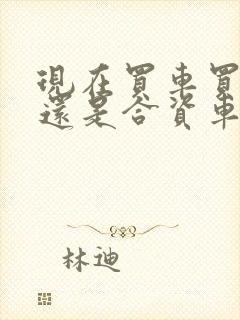 現在買車買
還是合資車
林迪